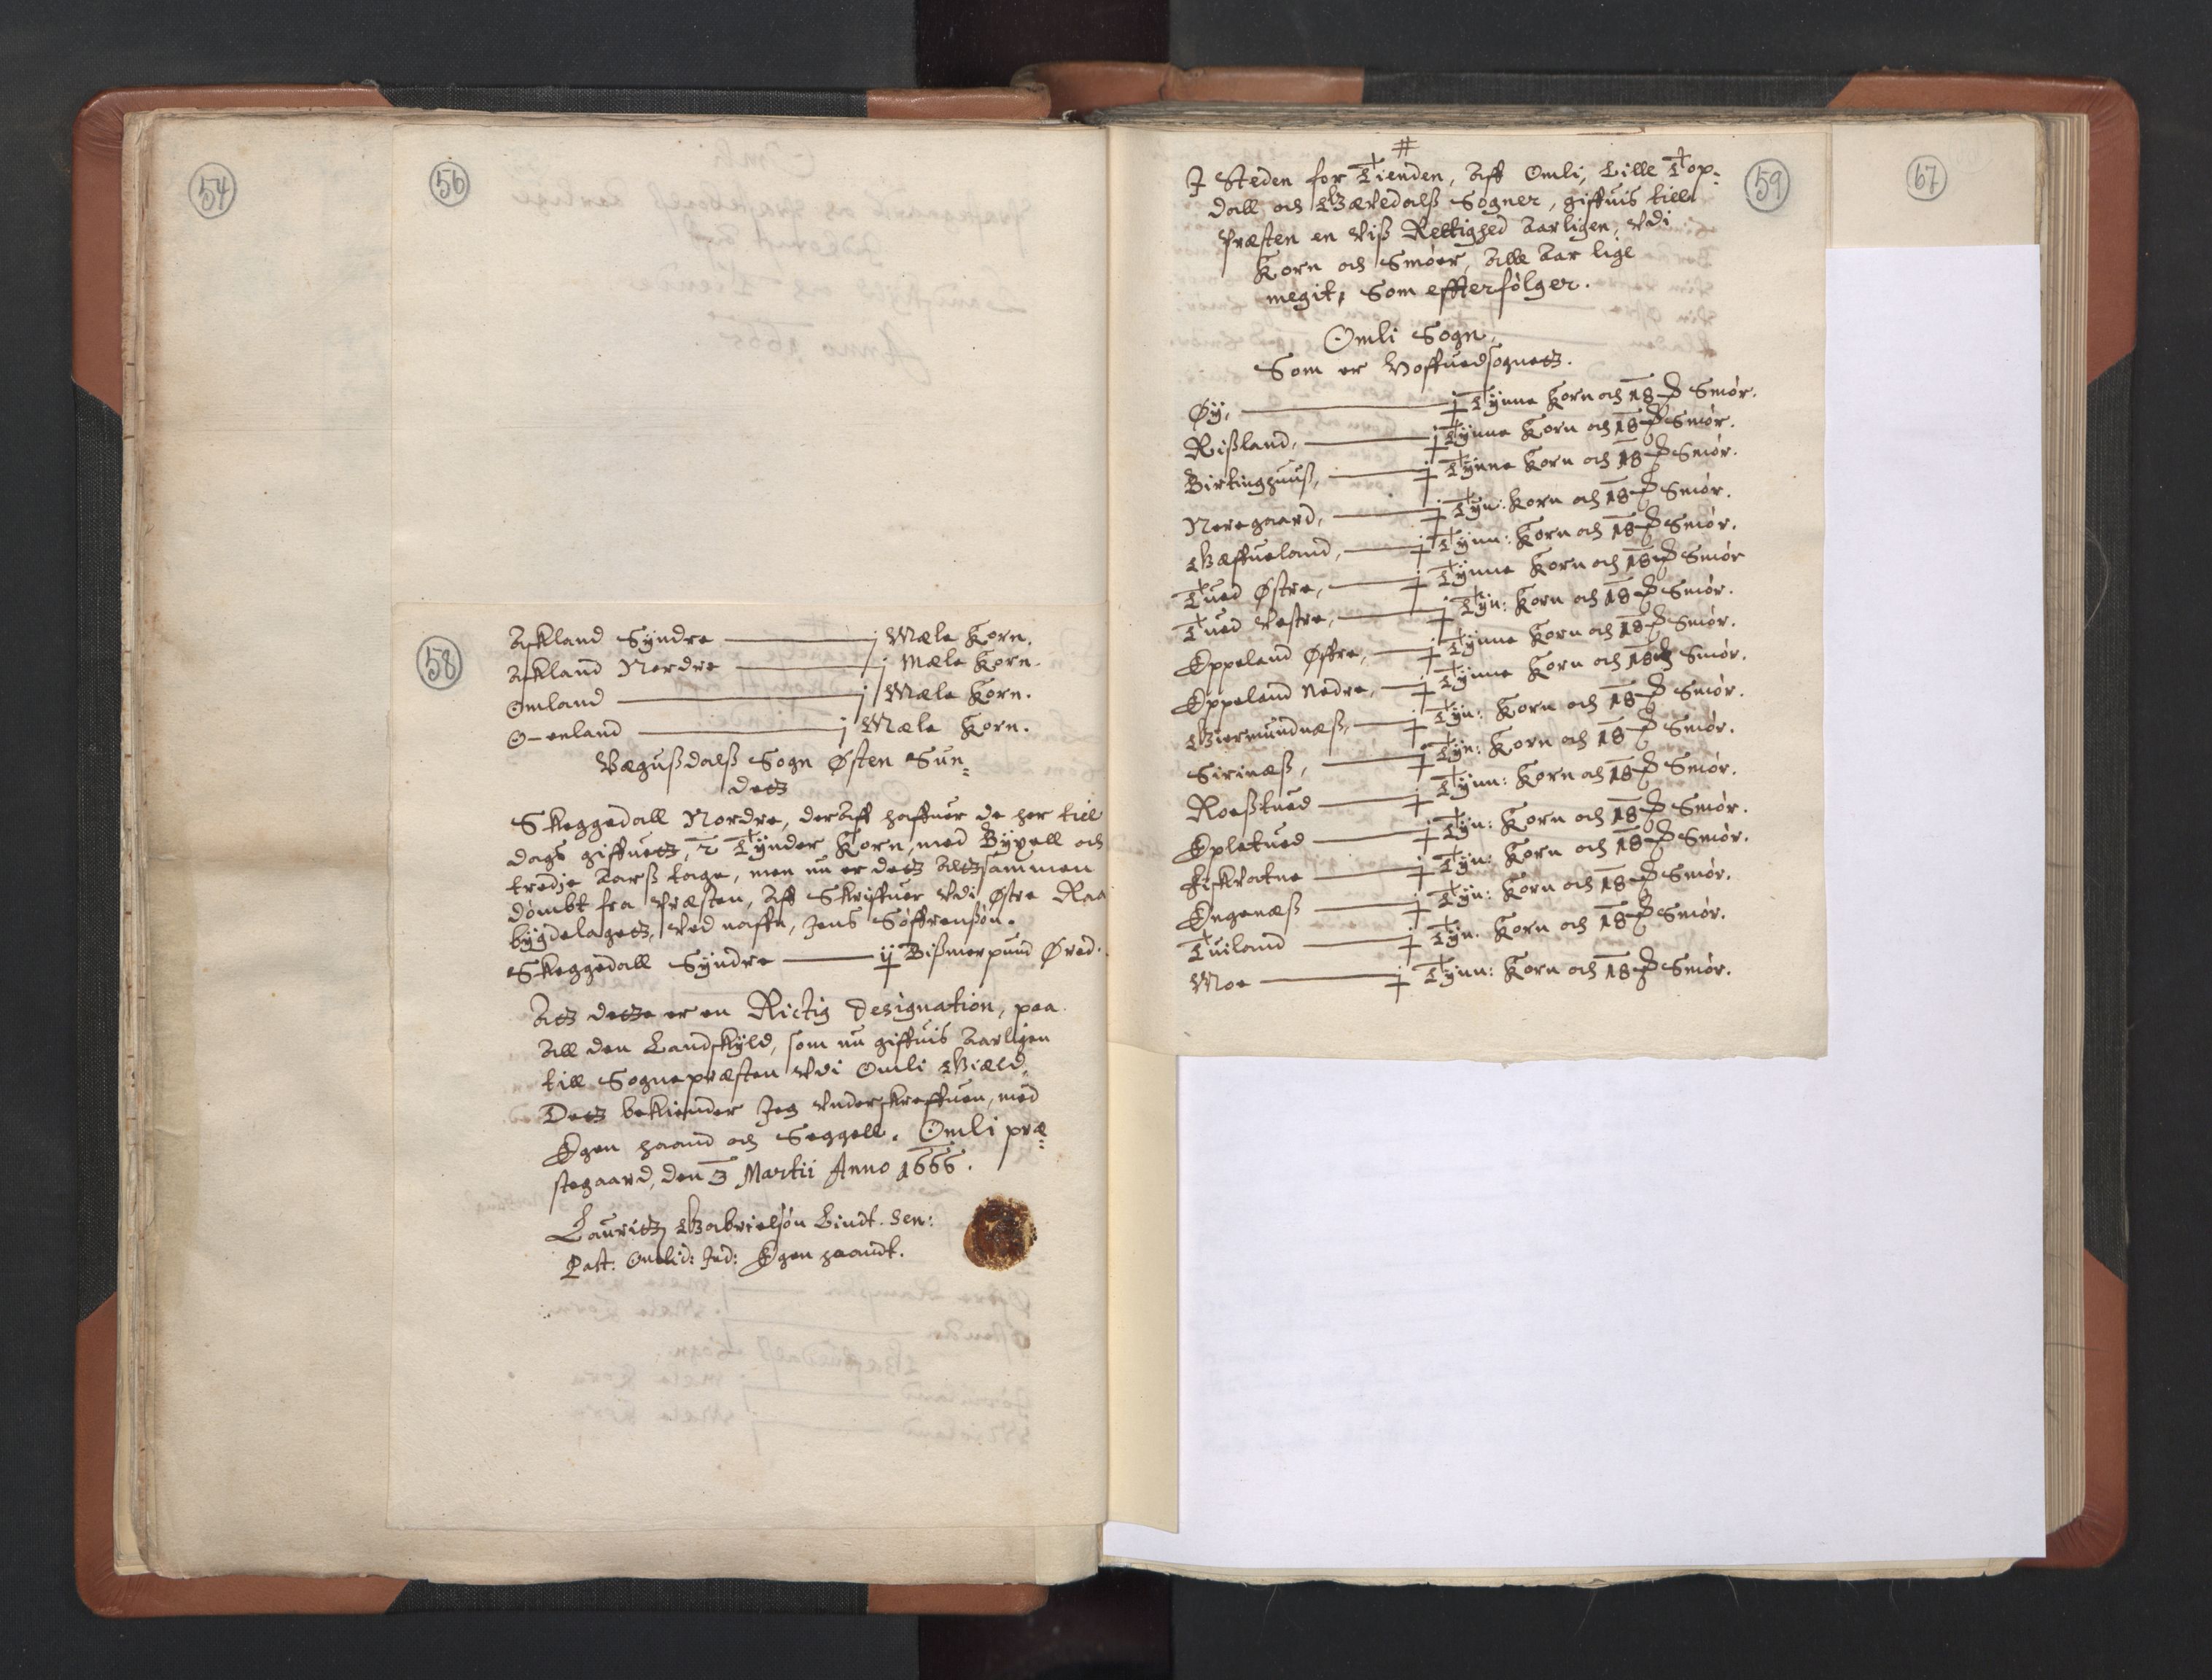 54
56
58
Askland Syndre j Mæle Korn.
Askland Nordre j Mæle Korn.
Omland j Mæle Korn.
O-enland j Mæle Korn.
Vægußdalß Sogn Østen Sun=
detz
Skeggedall Nordre, der Aff haffuer de her till
dags giffuetz, 2 Tynder Korn, med Byxell och
tredje Aarß tage, men nu er detz altzsammen
dømbt fra Præsten, Aff Skriffuer Vdi Østre Raa
bygdelagetz, Ved naffn, Jens Søffrenßøn.
Skeggedall Syndre ij Bißmerpund Øred.
Atz detze er en Rictig Designation, paa
All den Landskyld, som nu giffuis Aarligen
till Sognepræsten Vdi Omli Gield.
Detz bekiender Jeg Vnderskreffuen, med
Egen haand och Seggell. Omli præ=
stegaard, den 3 Martii Anno 1666.
Lauritz Gabrielsøn Lindt. Sen:
Past: Omlid: Ind: Egen haandt.
59
67
#
I Steden for Tienden, Aff Omli, Lille Top=
dall och Gævedalß Sogner, giffuis till
Præsten en Viß Rettighed Aarligen, Vdi
Korn och Smøer, Alle Aar lige
megit, Som effterfølger.
Omli Sogn,
Som er Hoffuedsognetz.
Øy, j Tynne Korn och 18 ℔ Smør.
Rißland, j Tynne Korn och 18 ℔ Smør.
Birtinghuuß, j Tynne Korn och 18 ℔ Smør.
Neregaard, j Tyn: Korn och 18 ℔ Smør.
Gæffueland, j Tynn: Korn och 18 ℔ Smør.
Tued Østre, j Tynne Korn och 18 ℔ Smør
Tued Vestre, j Tyn: Korn och 18 ℔ Smør.
Eppeland Øffre, j Tynne Korn och 18 ℔ Smør.
Eppeland Nedre, j Tynne Korn och 18 ℔ Smør.
Giermundnæß, j Tyn: Korn och 18 ℔ Smør.
Sirinæß, j Tyn: Korn och 18 ℔ Smør.
Roeßtued j Tynn: Korn och 18 ℔ Smør.
Epletued j Tyn: Korn och 18 ℔ Smør.
Fiskvatne j Tyn: Korn och 18 ℔ Smør.
Engenæß j Tyn: Korn och 18 ℔ Smør.
Tuiland j Tyn. Korn och 18 ℔ Smør.
Moe j Tynn: Korn och 18 ℔ Smør.